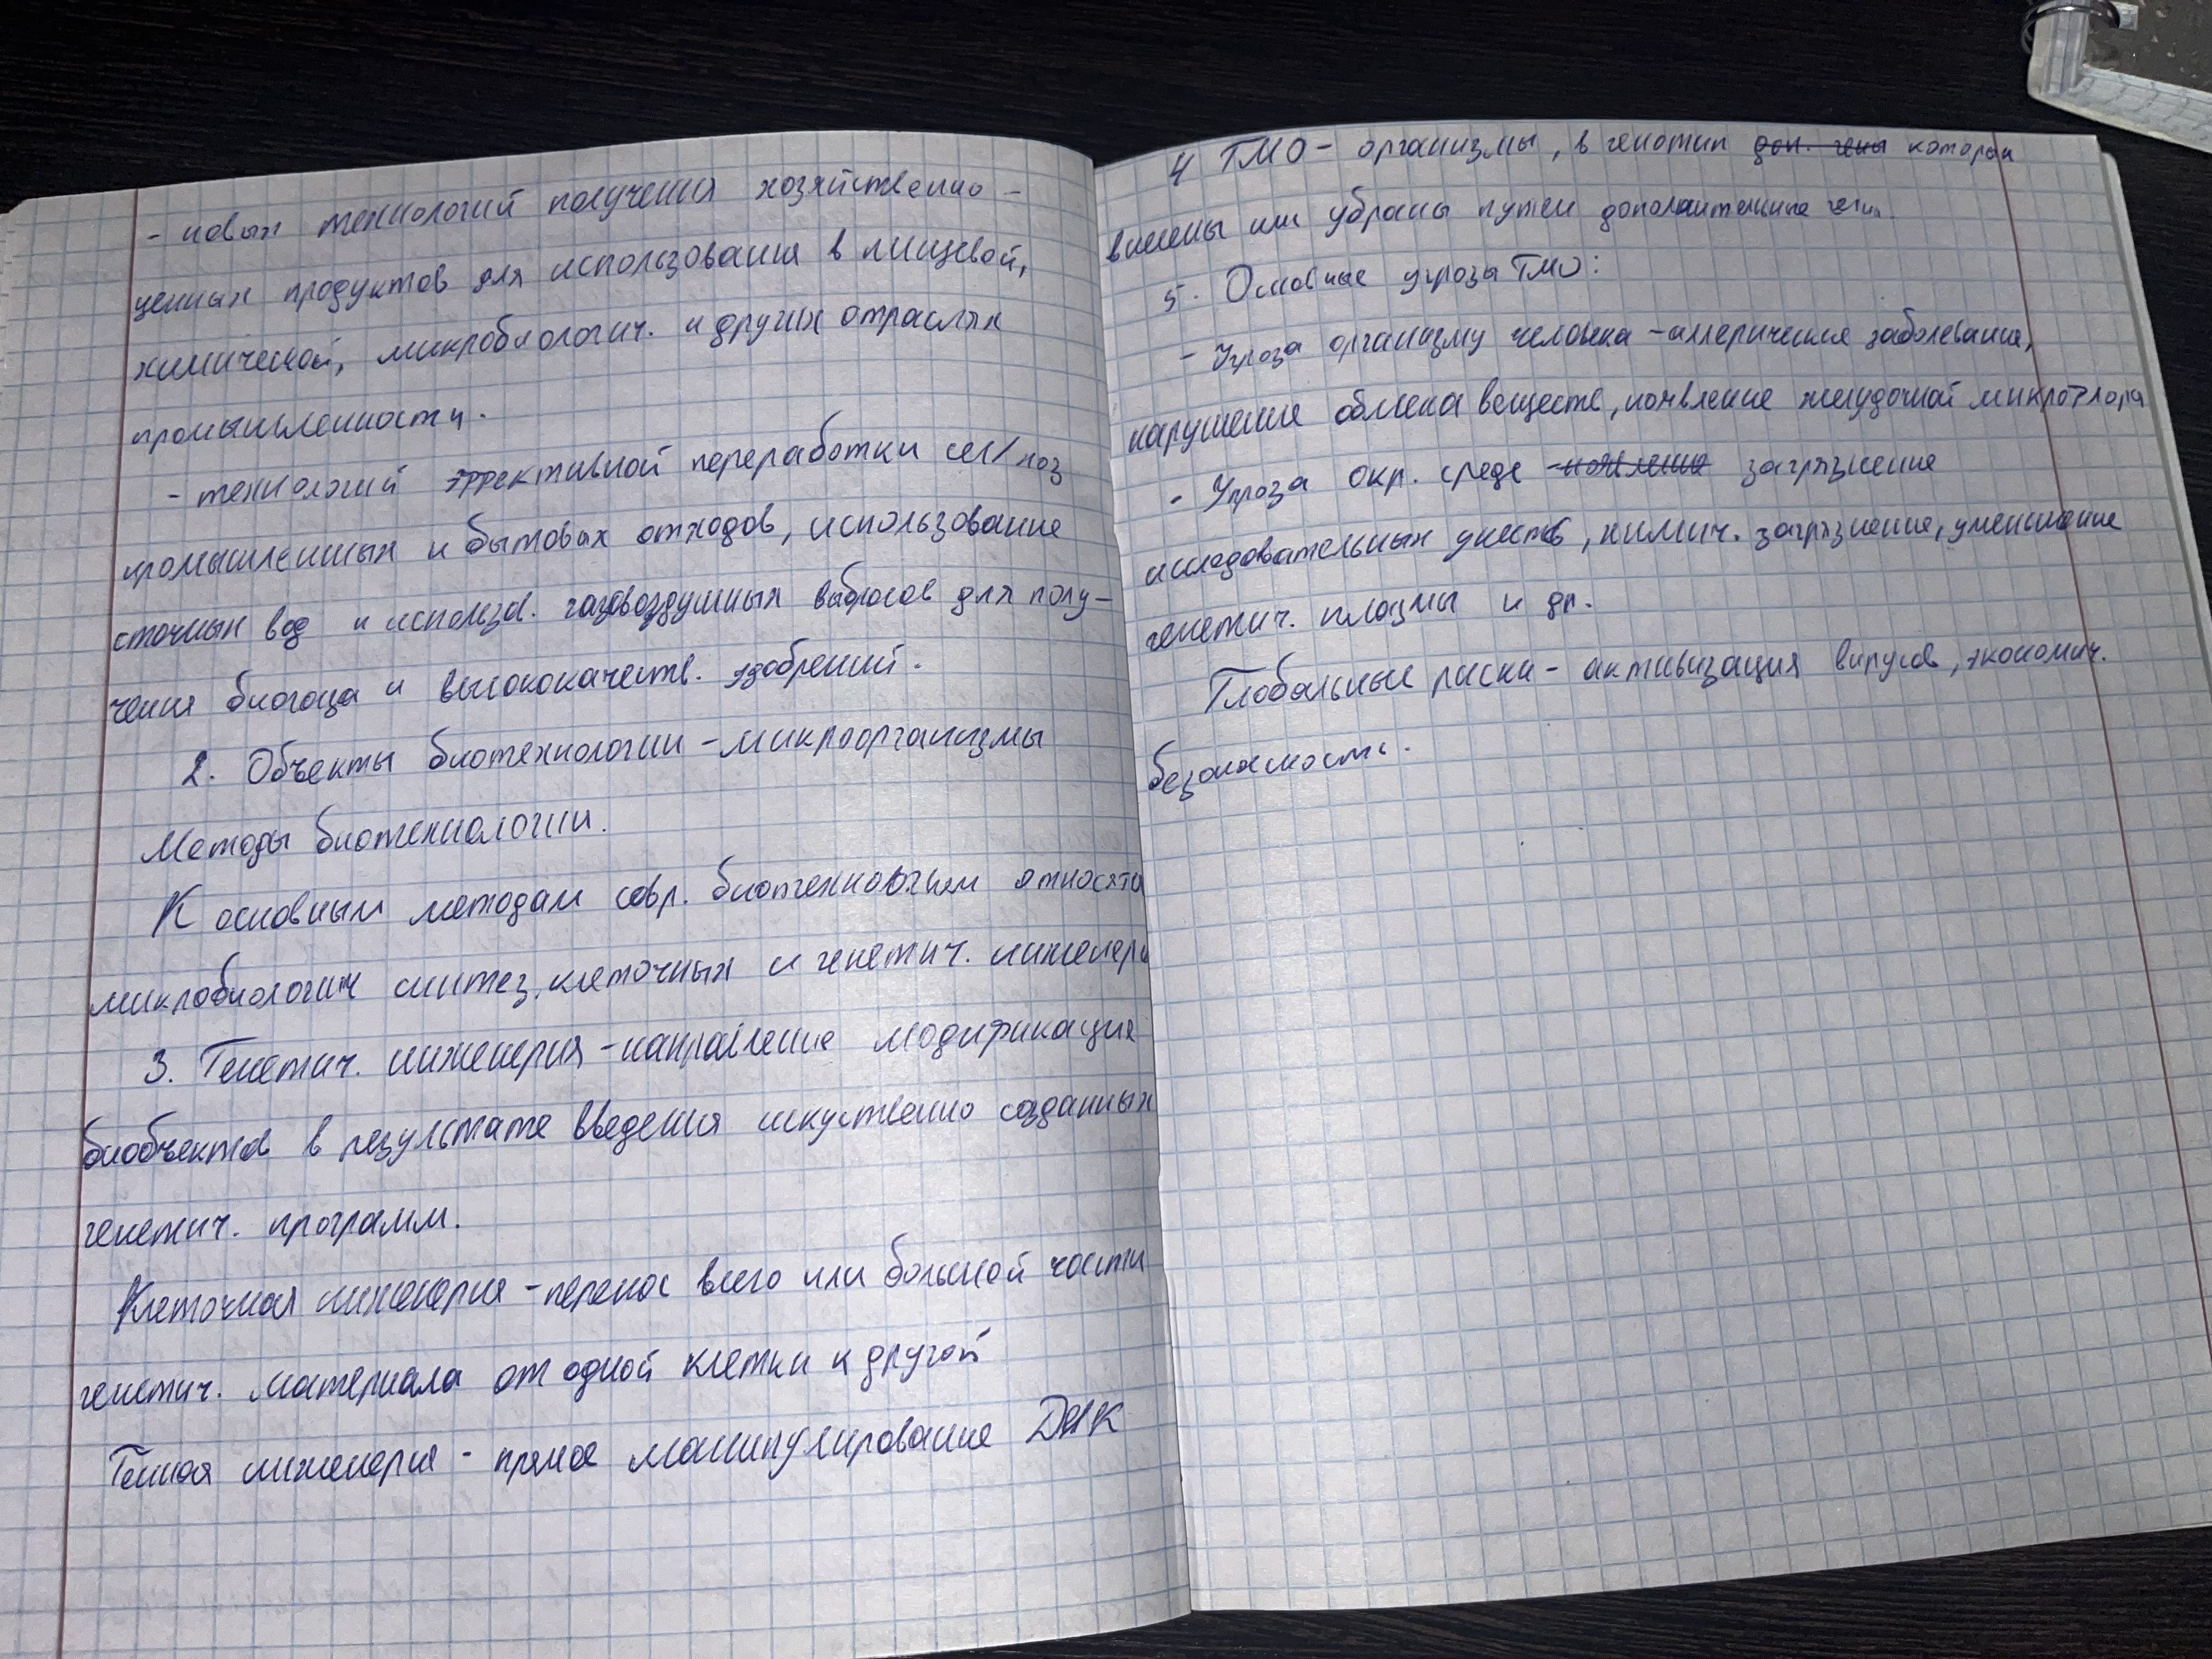 - новых технологий получения хозяйственно -
ценных продуктов для использования в пищевой,
химической, микробиологич. и других отраслях
промышленности.
- технологий эффективной переработки сел/хоз
промышленных и бытовых отходов, использование
сточных вод и использов. газовоздушных выбросов для полу-
чения биогаза и высококачеств. удобрений.
2. Объекты биотехнологии - микроорганизмы
Методы биотехнологии.
К основным методам совр. биотехнологии относятся
микробиологич синтез, клеточных и генетич. инженери
3. Генетич. инженерия - направление модификация
биобъектов в результате введения искуственно созданных
генетич. программ.
Клеточная инженерия - перенос всего или большой части
генетич. материала от одной клетки к другой
Генная инженерия - прямое манипулирование ДНК
4 ГМО - организмы, в генотип доп. гены которых
внесены или убраны путем дополнительные гены.
5. Основные угрозы ГМО:
- Угроза организму человека - аллергические заболевания,
нарушение обмена веществ, появление желудочной микрофлоры
- Угроза окр. среде - появление загрязнение
исследовательных участков, химич. загрязнение, уменьшение
генетич. плазмы и др.
Глобальные риски - активизация вирусов, экономич.
безопасность.